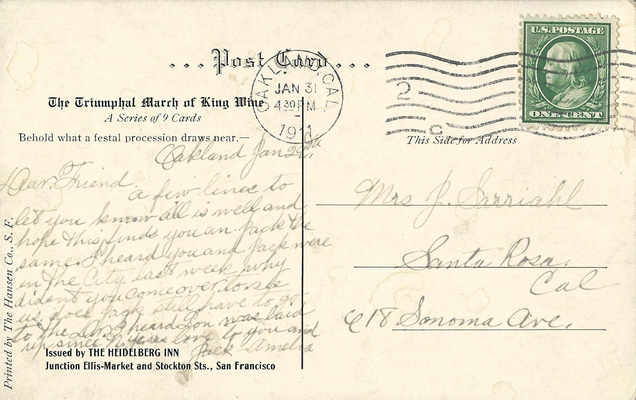 Post Card
U.S. POSTAGE
ONE CENT
OAKLAND, CAL.
JAN 31
4 30 PM
1911
2
C
The Triumphal March of King Wine
A Series of 9 Cards
Behold what a festal procession draws near.—
This Side for Address
Oakland Jan 29th
Dear Friend. a few lines to
let you know all is well and
hope this finds you an Jack the
same I heard you and Jack were
in the City last week why
dident you come over to see
us does Jack still have to go
to the heard Lon was laid
up since love to you and
Jack Amelia
Mrs J.
Santa Rosa.
Cal
618 Sonoma Ave.
Issued by THE HEIDELBERG INN
Junction Ellis-Market and Stockton Sts., San Francisco
Printed by The Hansen Co., S. F.